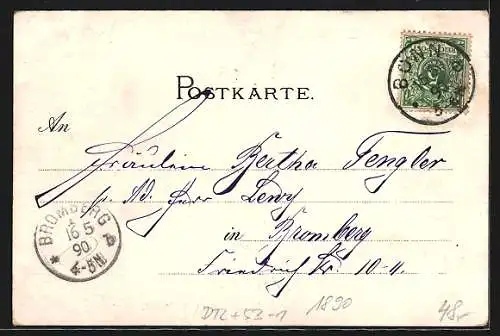 BONN
POSTKARTE.
An
Fräulein Bertha Fengler
pr. Ad. Herr Lewy
in Bromberg
Friedrich Str. 10-11.
BROMBERG
16 5
90
4-5N
1890
48-